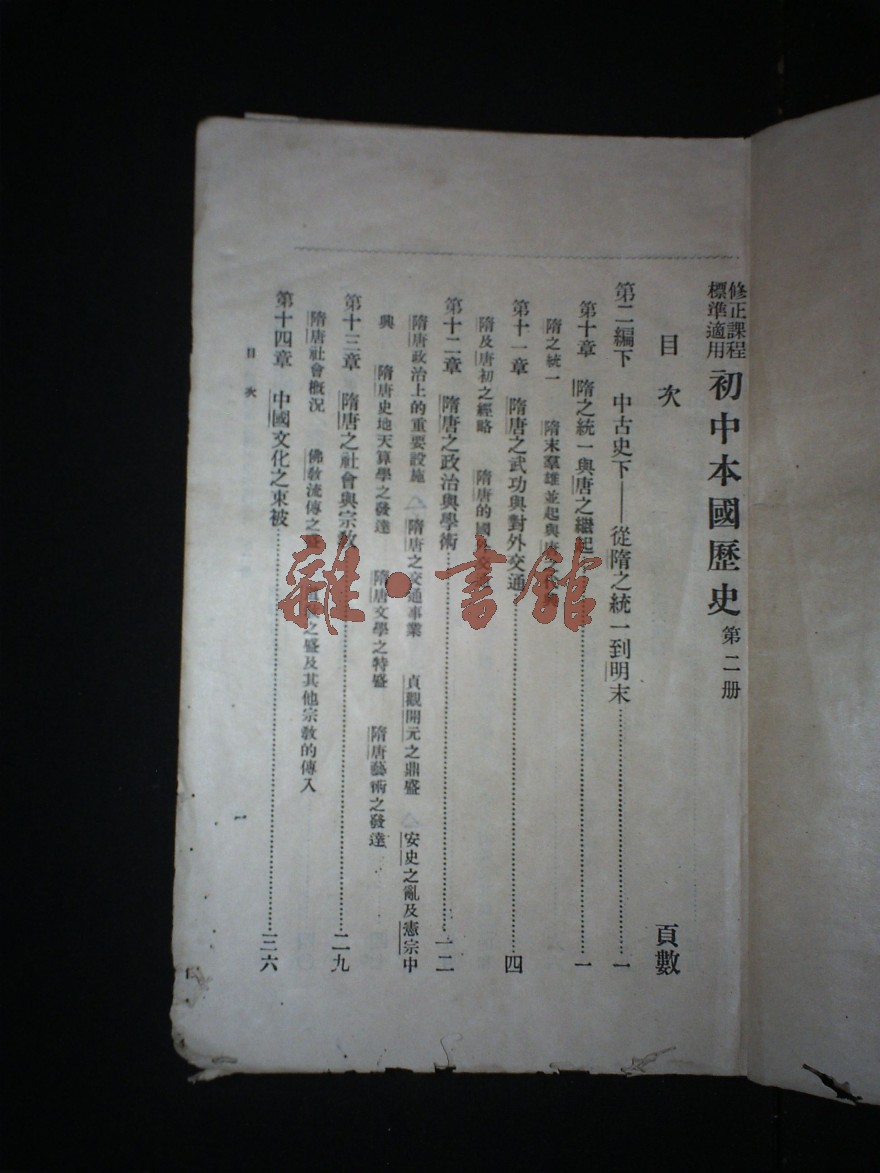 修正課程
標準適用
初中本國歷史 第二册
目次 頁數
第二編下 中古史下——從隋之統一到明末 一
第十章 隋之統一與唐之繼起 一
隋之統一 隋末羣雄並起與唐之
第十一章 隋唐之武功與對外交通 四
隋及唐初之經略 隋唐的國外交通
第十二章 隋唐之政治與學術 一二
隋唐政治上的重要設施 隋唐之交通事業 貞觀開元之鼎盛 安史之亂及憲宗中
興 隋唐史地天算學之發達 隋唐文學之特盛 隋唐藝術之發達
第十三章 隋唐之社會與宗教 二九
隋唐社會概況 佛教流傳之盛 之盛及其他宗教的傳入
第十四章 中國文化之東被 三六
目次 一
雜·書館